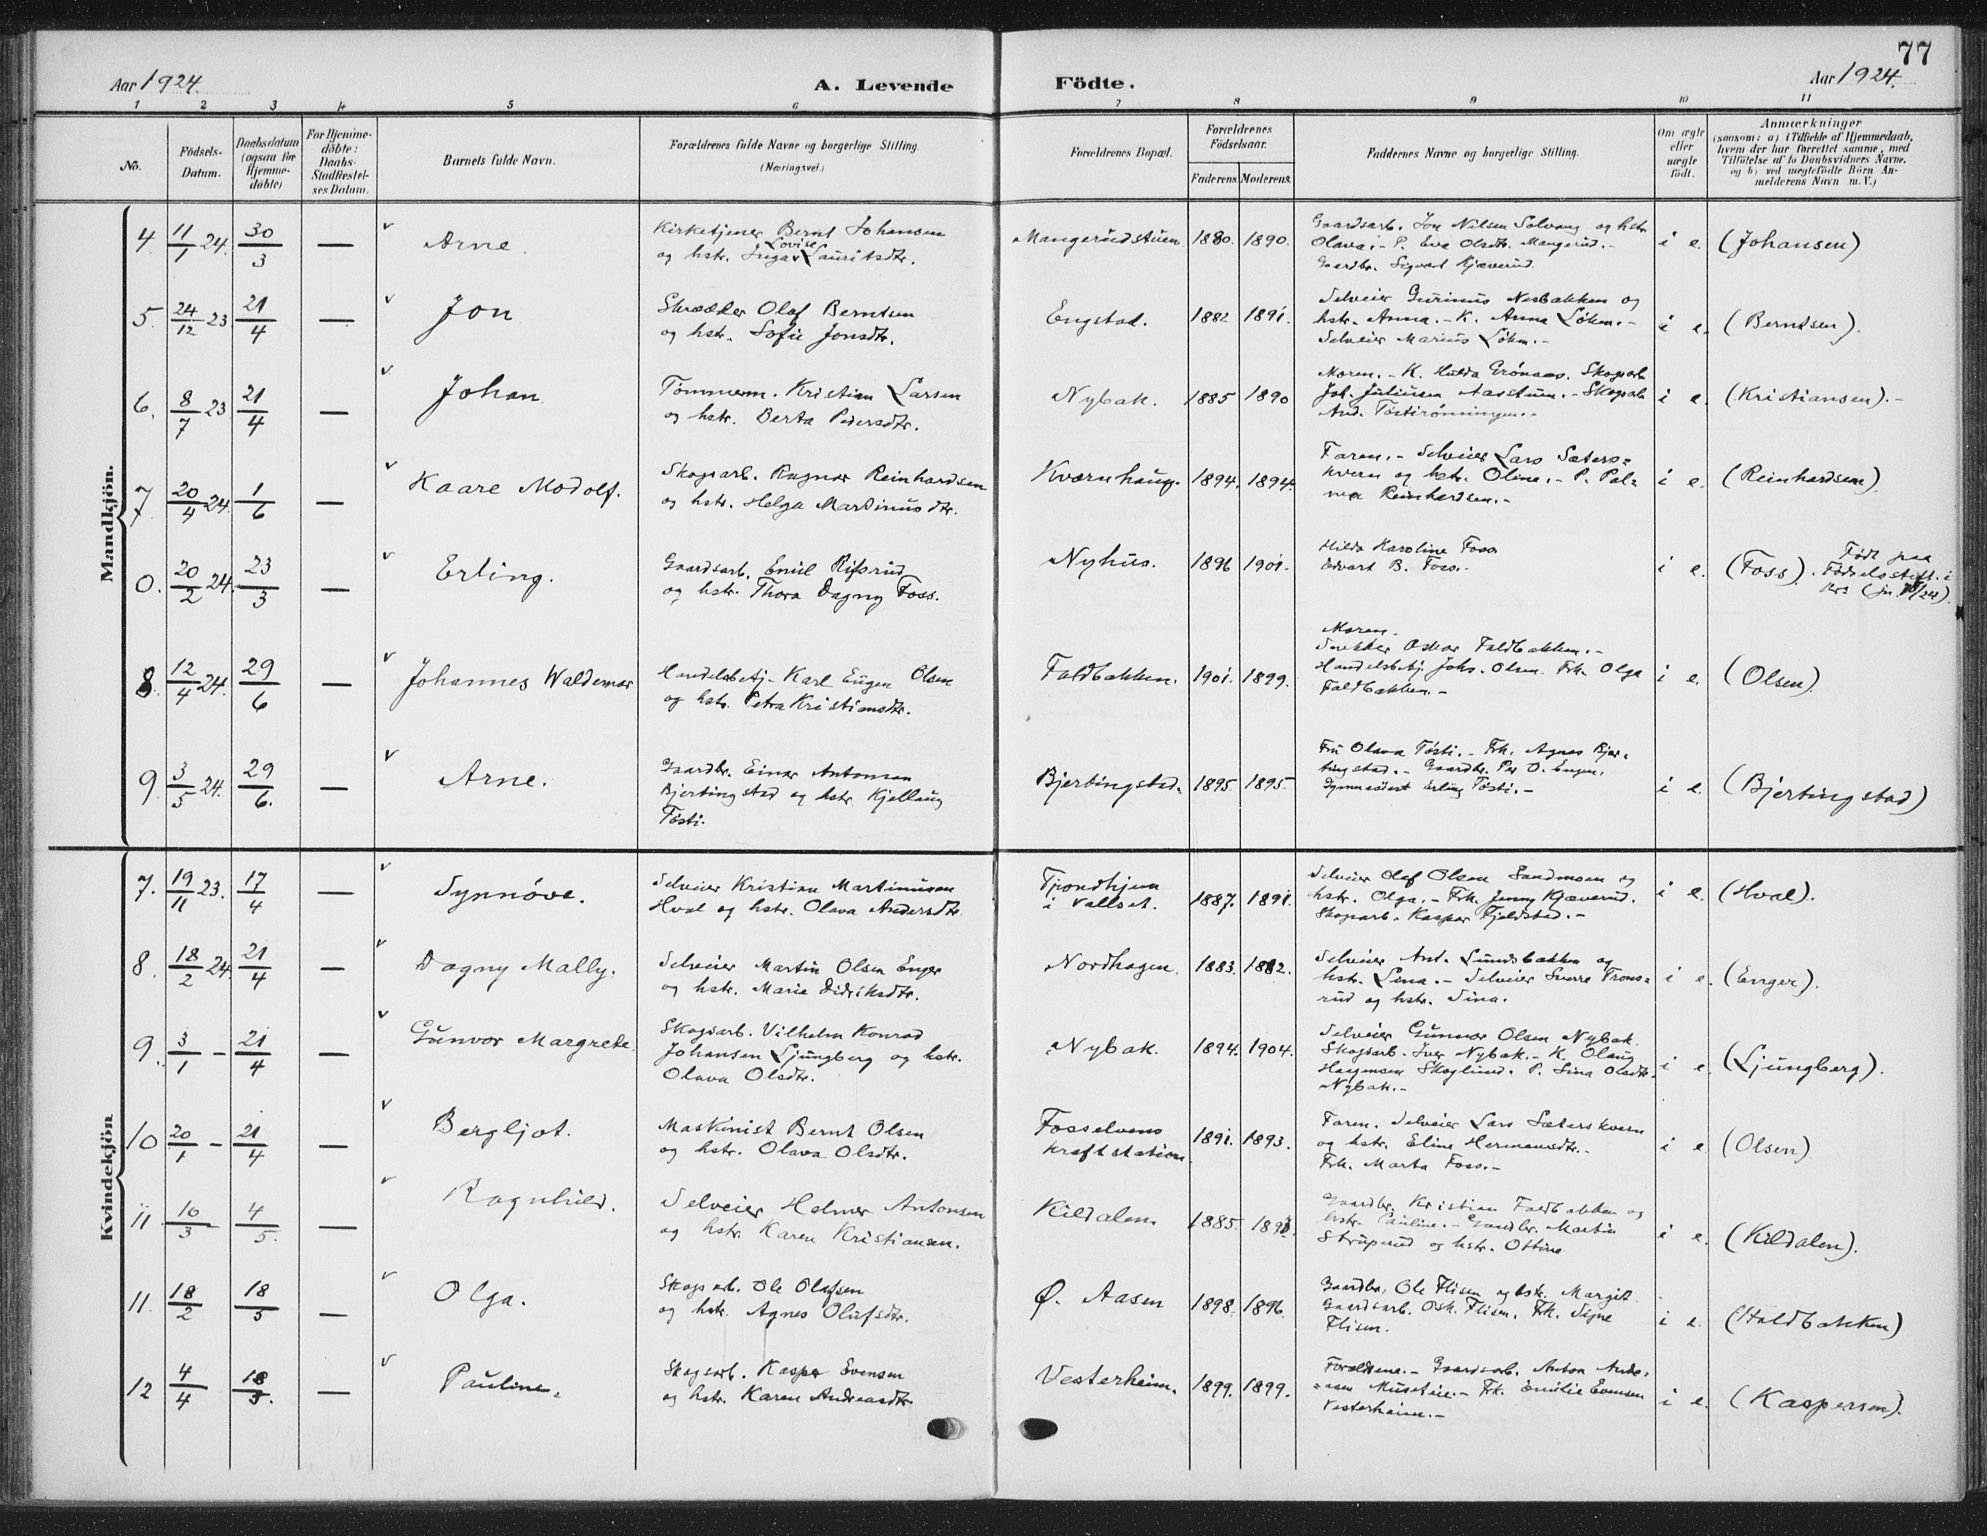 77
Aar 1924.
A. Levende
Födte.
Aar 1924.
1 2 3 4 5 6 7 8 9 10 11
No.
Födsels-
Datum.
Daabsdatum
(ogsaa for
Hjemme-
döbte)
For Hjemme-
döbte:
Daabs-
Stadfæstel-
ses Datum.
Barnets fulde Navn.
Forældrenes fulde Navne og borgerlige Stilling.
(Næringsvei.)
Forældrenes Bopæl.
Forældrenes
Födselsaar.
Faderens.
Moderens.
Faddernes Navne og borgerlige Stilling.
Om ægte
eller
uægte
födt.
Anmærkninger
(saasom: a) i Tilfælde af Hjemmedaab,
hvem der har forrettet samme, med
Tilföielse af to Daabsvidners Navne,
og b) ved uægtefödte Börn An-
melderens Navn m. V.)
Mandkjön.
4. 11/1 24. 30/3 — Arne.
Kirketjener Bernt Johansen
Lovise
og hstr. Inga Lauritsdtr.
Mangerudstuen 1880. 1890.
Gaardsarb. Jon Nilsen Solvang og hstr.
Olava. - P. Eva Olsdtr. Mangerud. -
Gaardbr. Sigvart Kjæverud.
i e. (Johansen)
5. 24/12 23 21/4 Jon
Skrædder Olaf Berntsen
og hstr. Sofie Jonsdtr.
Engstad. 1882 1891.
Selveier Gurinus Nesbakken og
hstr. Anna. - K. Anna Løken. -
Selveier Marius Løkn. -
i e. (Berntsen).
6. 8/7 23 21/4 — Johan
Tømmerm. Kristian Larsen
og hstr. Berta Pedersdtr.
Nybak. 1885 1890
Moren. - K. Hulda Grønaas. Skogsarb
Joh. Juliusen Aasstuen. - Skogsarb
And. Tøstirønningen. -
i e. (Kristiansen). -
7 20/4 24. 1/6 — Kaare Modolf.
Skogsarb. Ragnar Reinhardsen
og hstr. Helga Martinusdtr.
Kværnhaug. 1894. 1894.
Faren. - Selveier Lars Sæters=
kvern og hstr. Oline. - P. Pal=
ma Reinhardsen. -
i e. (Reinhardsen)
0. 20/2 24. 23/3 — Erling.
Gaardsarb. Emil Risrud
og hstr. Thora Dagny Foss.
Nyhus. 1896 1901.
Hilda Karoline Foss
Edvart B. Foss. -
i e. (Foss).
Født paa
Fødselsstift. i
8 12/4 24. 29/6 — Johannes Waldemar
Handelsbetj. Karl Eugen Olsen
og hstr. Petra Kristiansdtr.
Faldbakken. 1901. 1899.
Moren.
Snekker Oskar Faldbakken. -
Handelsbetj. Johs. Olsen. Frk. Olga
Faldbakken. -
i e. (Olsen)
9. 3/5 24. 29/6. — Arne.
Gaardbr. Einar Antonsen
Bjertingstad og hstr. Kjellaug
Tøsti.
Bjertingstad. 1895. 1895
Fru Olava Tøsti. - Frk. Agnes Bjer-
tingstad. - Gaardbr. Per O. Engen.
Gymnasiast Erling Tøsti. -
i e. (Bjertingstad)
Kvindekjön
7. 19/11 23. 17/4 — Synnöve.
Selveier Kristian Martinusen
Hval og hstr. Olava Andersdtr.
Trondhjem
i Vallset. 1887. 1891.
Selveier Olaf Olsen Sandmoen og
hstr. Olga. - Frk. Jenny Kjæverud.
Skogsarb. Kaspar Fjeldstad. -
i e. (Hval).
8. 18/2 24. 21/4 — Dagny Mally.
Selveier Martin Olsen Enger
og hstr. Marie Didriksdtr.
Nordhagen. 1883. 1882.
Selveier Ant. Lundsbakken og
hstr. Lina. - Selveier Sverre Trons=
rud og hstr. Sina.
i e. (Enger).
9. 3/1 - 21/4 — Gunvor Margrete.
Skogsarb. Vilhelm Konrad
Johansen Ljungberg og hstr.
Olava Olsdtr.
Nybak. 1894. 1904.
Selveier Gunnar Olsen Nybak.
Skogsarb. Iver Nybak. - K. Olaug
Haagensen Skoglund. P. Sina Olsdtr.
Nybak. -
i e. (Ljungberg).
10 20/1 - 21/4 — Bergljot.
Maskinist Bernt Olsen
og hstr. Olava Olsdtr.
Fosselvens
kraftstation. 1891. 1893.
Faren. Selveier Lars Sæterskvern
og hstr. Eline Hermansdtr. -
Frk. Marta Foss. -
i e. (Olsen)
11 16/3 - 4/5. — Ragnhild.
Selveier Helmer Antonsen
og hstr. Karen Kristiansen.
Kildalen. 1885.
Gaardbr. Kristian Faldbakken og
hstr. Pauline. - Gaardbr. Martin
Struperud og hstr. Ottine
i e. (Kildalen).
11. 18/2 18/5 — Olga.
Skogsarb. Ole Olafsen
og hstr. Agnes Olufsdtr.
Ø. Aasen 1898. 1896.
Gaardbr. Ole Flisen og hstr. Margit.
Gaardsarb. Osk. Flisen. Frk. Signe
Flisen.
i e. (Holdbakken)
12 4/4 18/5. — Pauline.
Skogsarb. Kaspar Evensen
og hstr. Karen Andreasdtr
Vesterheim. 1899. 1899.
Forældrene. - Gaardsarb. Anton Andr=
=asen Museteie. - Frk. Emilie Evensen
Vesterheim. -
i e. (Kaspersen).